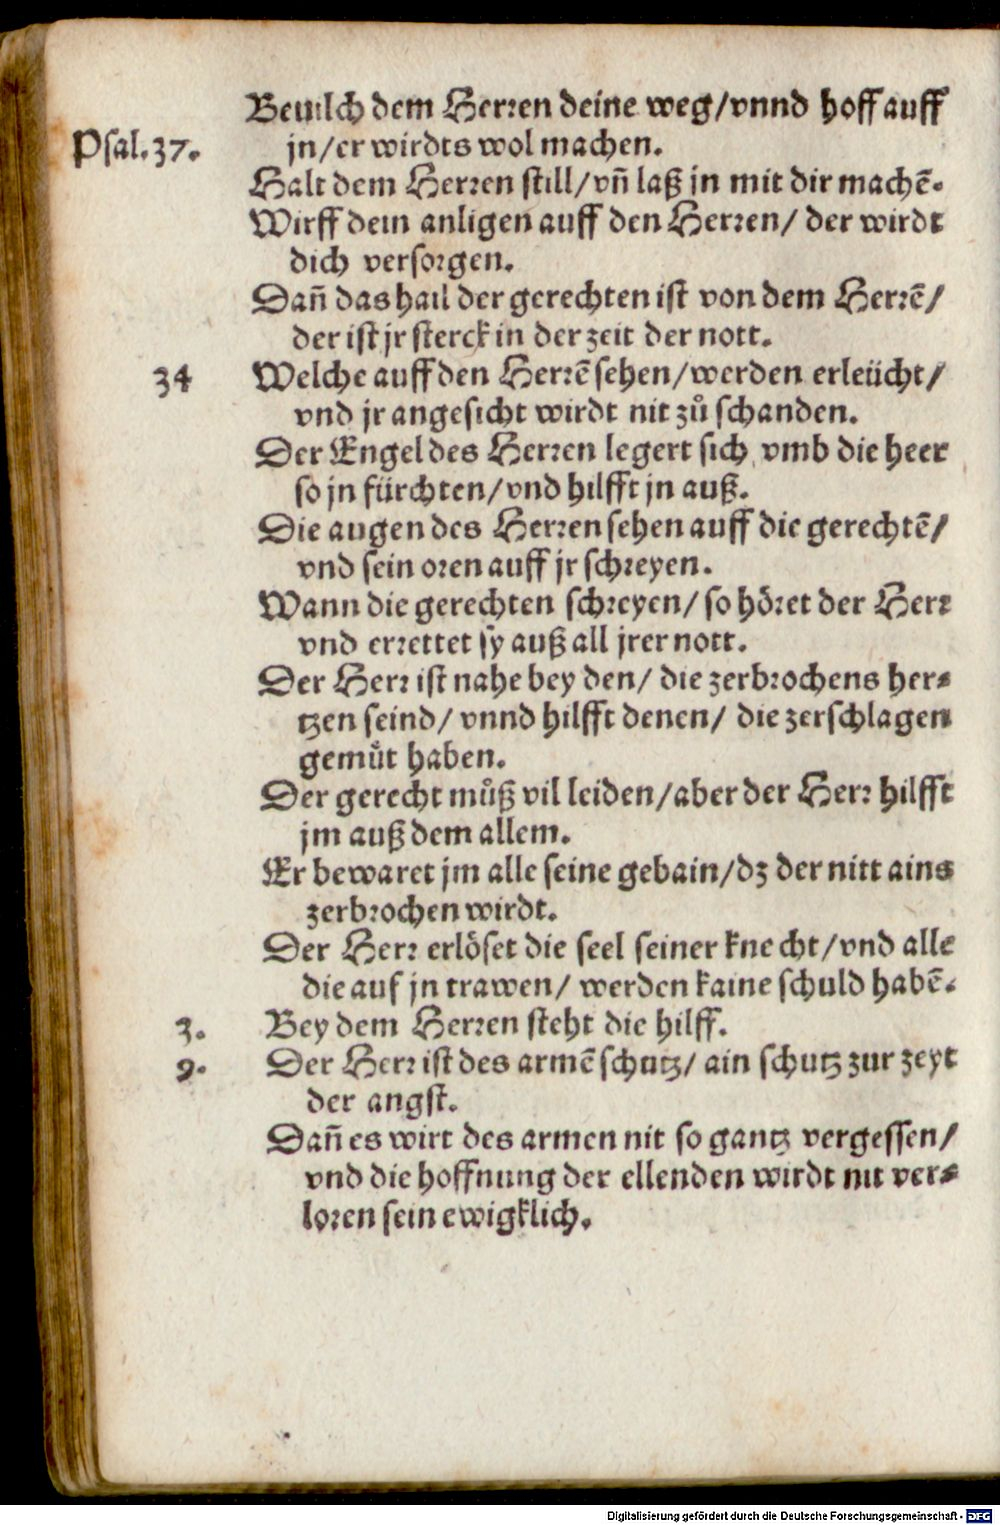 Beuilch dem Herren deine weg/vnnd hoff auff
Psal.37. jn/er wirdts wol machen.
Halt dem Herren still/vn̄ laß jn mit dir machē.
Wirff dein anligen auff den Herren/ der wirdt
dich versorgen.
Dan̄ das hail der gerechten ist von dem Herrē/
der ist jr sterck in der zeit der nott.
34 Welche auff den Herrē sehen/werden erleücht/
vnd jr angesicht wirdt nit zů schanden.
Der Engel des Herren legert sich vmb die heer
so jn fürchten/vnd hilfft jn auß.
Die augen des Herren sehen auff die gerechtē/
vnd sein oren auff jr schreyen.
Wann die gerechten schreyen/ so höret der Herr
vnd errettet sy auß all jrer nott.
Der Herr ist nahe bey den/ die zerbrochens her-
tzen seind/ vnnd hilfft denen/ die zerschlagen
gemüt haben.
Der gerecht můß vil leiden/aber der Herr hilfft
jm auß dem allem.
Er bewaret jm alle seine gebain/dz der nitt ains
zerbrochen wirdt.
Der Herr erlöset die seel seiner knecht/vnd alle
die auf jn trawen/ werden kaine schuld habē.
3. Bey dem Herren steht die hilff.
9. Der Herr ist des armē schutz/ ain schutz zur zeyt
der angst.
Dan̄ es wirt des armen nit so gantz vergessen/
vnd die hoffnung der ellenden wirdt nit ver-
loren sein ewigklich.
Digitalisierung gefördert durch die Deutsche Forschungsgemeinschaft - DFG